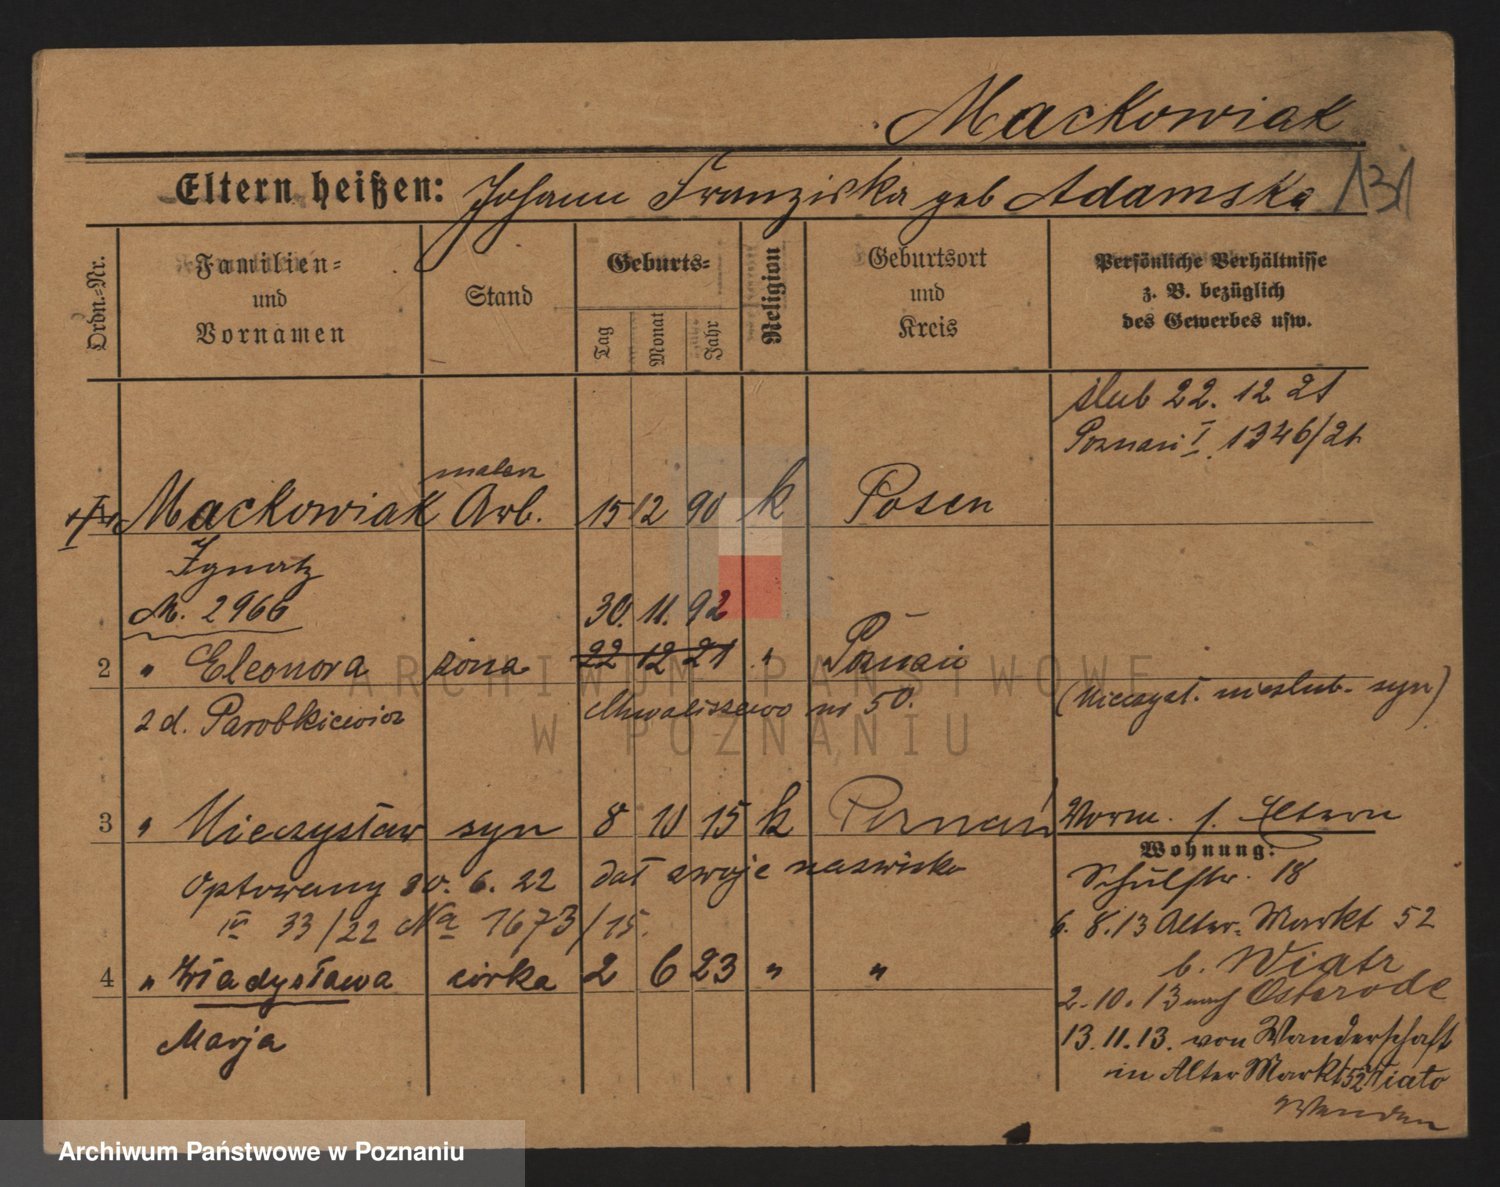 Mackowiak
Eltern heißen: Johann Franziska geb Adamska 131
Ordn.-Nr.
Familien-
und
Vornamen
Stand
Geburts-
Tag
Monat
Jahr
Religion
Geburtsort
und
Kreis
Persönliche Verhältnisse
z. B. bezüglich
des Gewerbes usw.
ślub 22. 12 21
Poznań I. 1346/21
malarz
Mackowiak Arb. 15 12 90 k Posen
Ignatz
M. 2966
30. 11. 92
2 " Eleonora żona 22 12 21 " Poznań
z d. Parobkiewicz Chwaliszewo nr 50.
(Mieczysł. nieślub. syn)
3 " Mieczysław syn 8 10 15 k Poznań
Vorm. s. Eltern
Wohnung:
Optowany 20. 6. 22 dał swoje nazwisko
Schulstr. 18
IV 33/22 No 1673/15.
6. 8. 13 Alter Markt 52
b. Wiatr
4 " Władysława córka 2 6 23 " "
2. 10. 13 nach Osterode
Marja
13. 11. 13. von Wanderschaft
in Alter Markt 52
ARCHIWUM PAŃSTWOWE
W POZNANIU
Archiwum Państwowe w Poznaniu